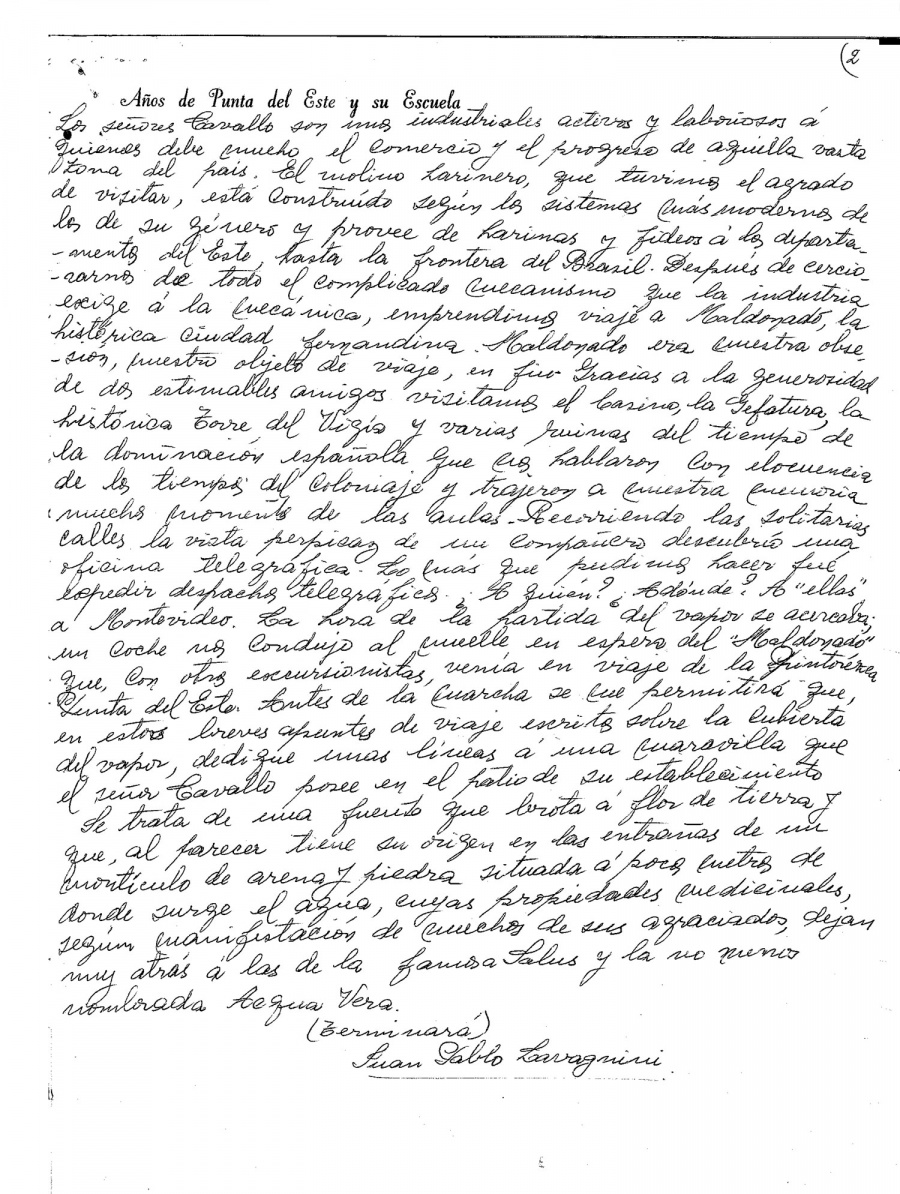 (2
Años de Punta del Este y su Escuela
Los señores Cavallo son unos industriales activos y laboriosos á
quienes debe mucho el comercio y el progreso de aquella vasta
zona del país. El molino harinero, que tuvimos el agrado
de visitar, está construído según los sistemas más modernos de
los de su género y provee de harinas y fideos á los departa-
-mentos del Este, hasta la frontera del Brasil. Después de cercio-
-rarnos de todo el complicado mecanismo que la industria
exige á la mecánica, emprendimos viaje a Maldonado, la
histórica ciudad fernandina. Maldonado era nuestra obse-
-sión, nuestro objeto de viaje, en fin. Gracias a la generosidad
de dos estimables amigos visitamos el Casino, la Gefatura, la
histórica Torre del Vigía y varias ruinas del tiempo de
la dominación española que nos hablaron con elocuencia
de los tiempos del coloniaje y trajeron a nuestra memoria
muchos momentos de las aulas. Recorriendo las solitarias
calles la vista perpicaz de un compañero descubrió una
oficina telegráfica. Lo más que pudimos hacer fué
expedir despachos telegráficos. ¿A quién? ¿Adónde? A "ellas",
a Montevideo. La hora de la partida del vapor se acercaba;
un coche nos condujo al muelle en espera del "Maldonado"
que, con otros excursionistas, venía en viaje de la pintoresca
Punta del Este. Antes de la marcha se me permitirá que,
en estos breves apuntes de viaje escritos sobre la cubierta
del vapor, dedique unas líneas á una maravilla que
el señor Cavallo posee en el patio de su establecimiento
Se trata de una fuente que brota á flor de tierra y
que, al parecer tiene su origen en las entrañas de un
montículo de arena y piedra situada á pocos metros de
donde surge el agua, cuyas propiedades medicinales,
según manifestación de muchos de sus agraciados, dejan
muy atrás á las de la famosa Salus y la no menos
nombrada Acqua Vera.
(Terminará)
Juan Pablo Lavagnini